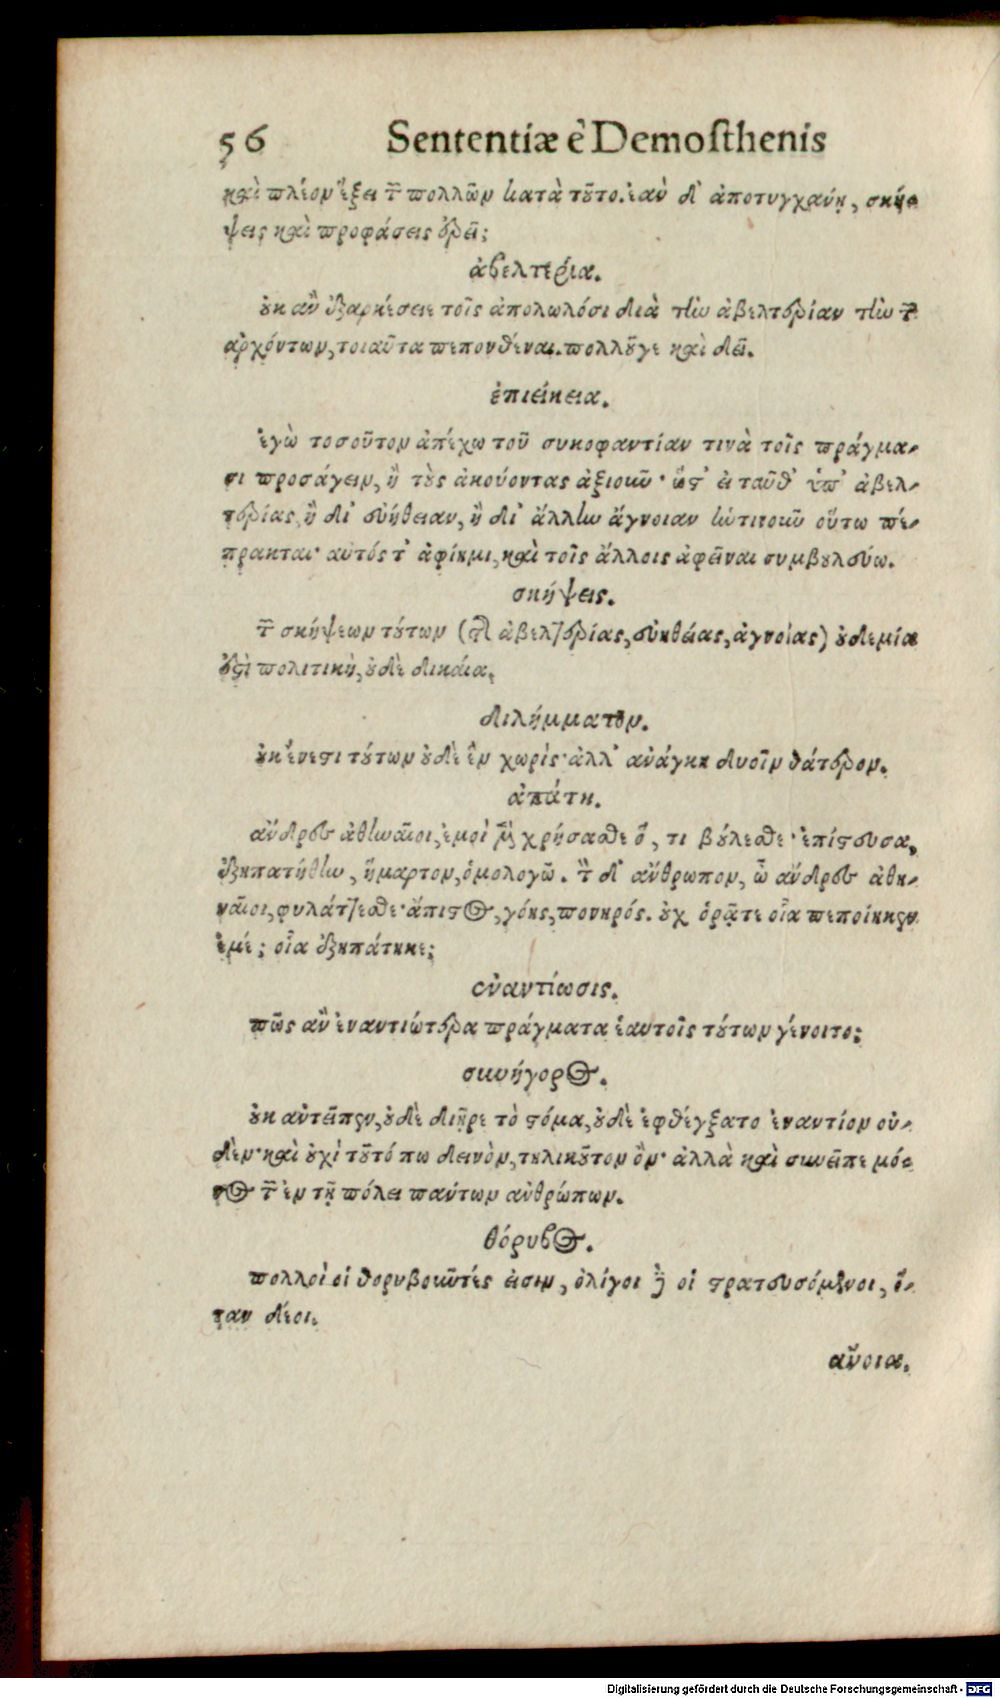 56 Sententiæ è Demoſthenis
καὶ πλέον ἕξει τῶν πολλῶν κατὰ τοῦτο. ἐὰν δ' ἀποτυγχάνῃ, σκή-
ψεις καὶ προφάσεις ἐρεῖ;
ἀβελτερία.
οὐκ ἂν ἐξαρκέσειε τοῖς ἀπολωλόσι διὰ τὴν ἀβελτερίαν τὴν τῶν
ἀρχόντων, τοιαῦτα πεπονθέναι. πολλοῦγε καὶ δεῖ.
ἐπιείκεια.
ἐγὼ τοσοῦτον ἀπέχω τοῦ συκοφαντίαν τινὰ τοῖς πράγμα-
σι προσάγειν, ἢ τοὺς ἀκούοντας ἀξιοῦν· ὥστ' εἰ ταῦθ' ὑπ' ἀβελ-
τερίας, ἢ δι' εὐήθειαν, ἢ δι' ἄλλην ἄγνοιαν ἡντινοῦν οὕτω πέ-
πρακται· αὐτός τ' ἀφίημι, καὶ τοῖς ἄλλοις ἀφεῖναι συμβουλεύω.
σκήψεις.
τῶν σκήψεων τούτων (τῆς ἀβελτερίας, εὐηθείας, ἀγνοίας) οὐδεμία
ἐστὶ πολιτικὴ, οὐδὲ δικαία.
διλήμματον.
οὐκ ἔνεστι τούτων οὐδὲ ἓν χωρίς· ἀλλ' ἀνάγκη δυοῖν θάτερον.
ἀπάτη.
ἄνδρες ἀθηναῖοι, ἐμοὶ μὲν χρήσασθε ὅ, τι βούλεσθε· ἐπίστευσα,
ἐξηπατήθην, ἥμαρτον, ὁμολογῶ. τὸν δ' ἄνθρωπον, ὦ ἄνδρες ἀθη-
ναῖοι, φυλάττεσθε· ἄπιστος, γόης, πονηρός. οὐχ ὁρᾶτε οἷα πεποίηκεν
ἐμέ; οἷα ἐξηπάτηκε;
ἐναντίωσις.
πῶς ἂν ἐναντιώτερα πράγματα ἑαυτοῖς τούτων γένοιτο;
συνήγορος.
οὐκ ἀντεῖπεν, οὐδὲ διῆρε τὸ στόμα, οὐδὲ ἐφθέγξατο ἐναντίον οὐ-
δέν· καὶ οὐχὶ τοῦτό πω δεινὸν, τηλικοῦτον ὄν· ἀλλὰ καὶ συνεῖπε μό-
νος τῶν ἐν τῇ πόλει πάντων ἀνθρώπων.
θόρυβος.
πολλοὶ οἱ θορυβοῦντές εἰσιν, ὀλίγοι δὲ οἱ στρατευσόμενοι, ὅ-
ταν δέοι.
ἄνοια.
Digitalisierung gefördert durch die Deutsche Forschungsgemeinschaft - DFG